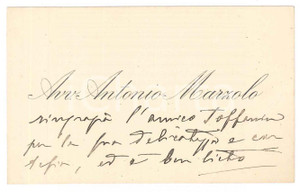 Avv. Antonio Marzolo
ringrazia l'amico Toffanin
per la sua delicatezza e cor
tesia, ed è ben lieto